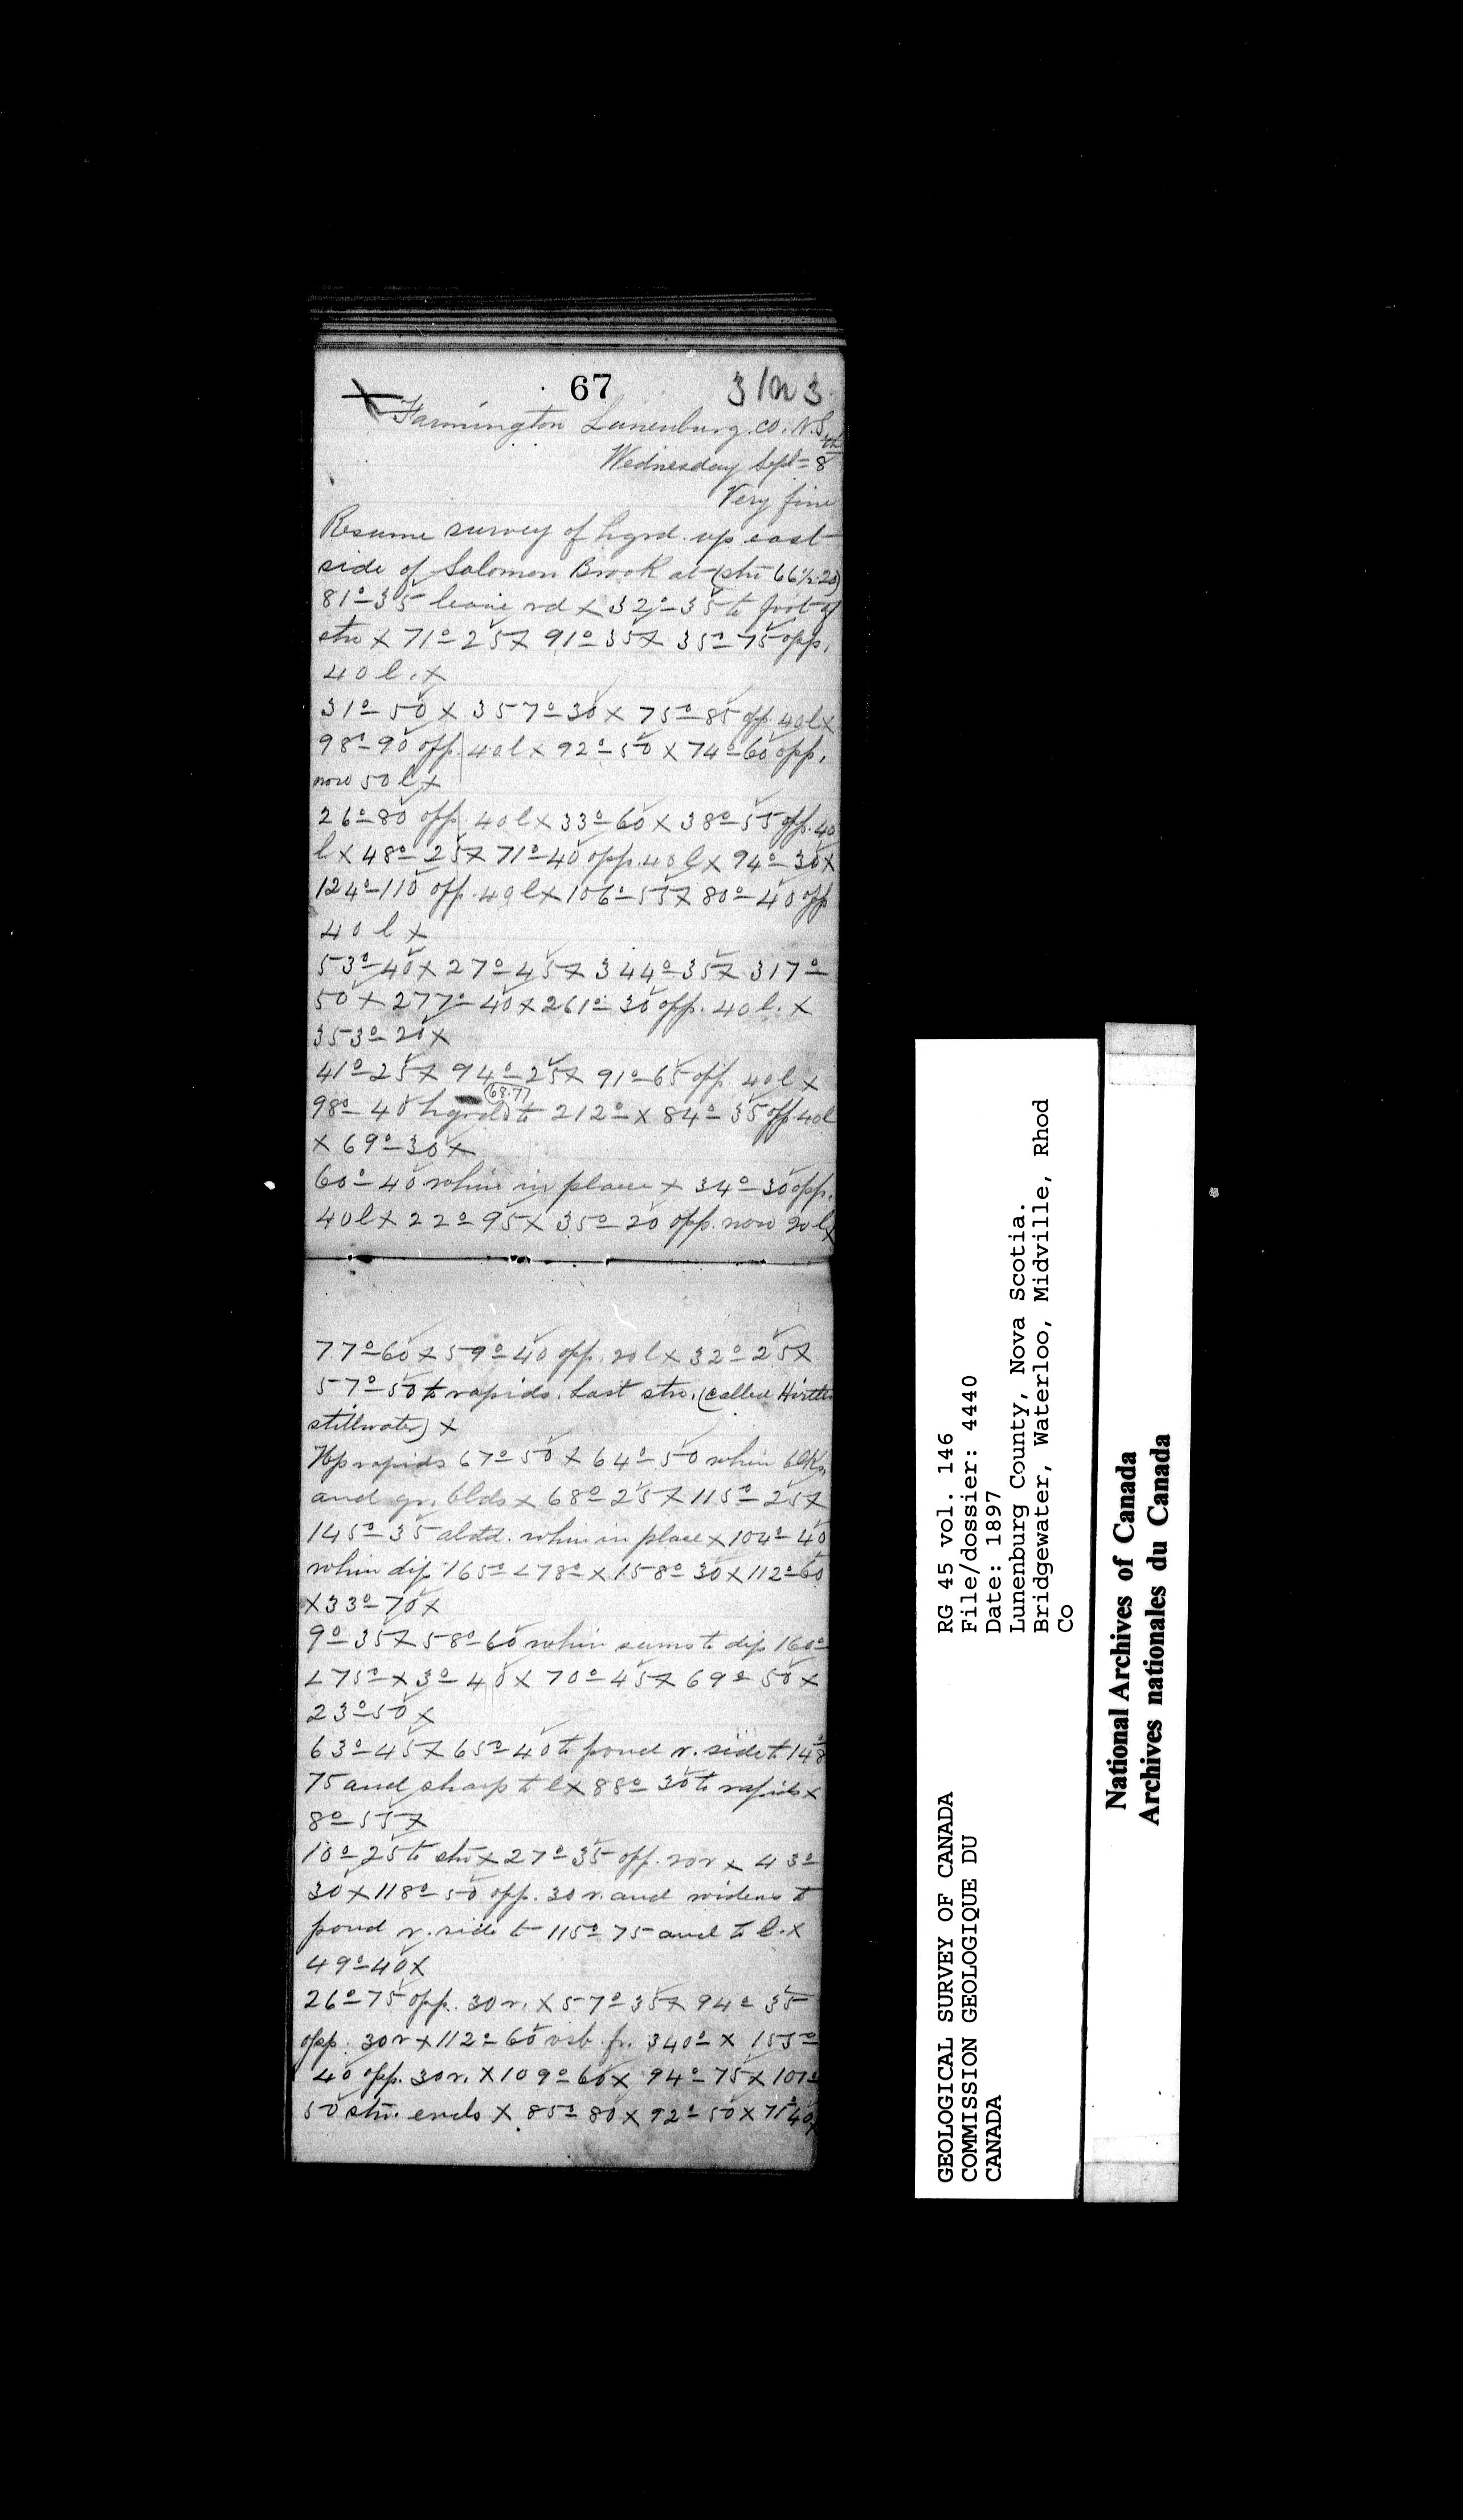 67
Farmington Lunenburg. Co. N.S.
Wednesday Sept= 8th
Very fine
Resume survey of hgrd. up east
side of Solomon Brook at (stn 66½.20)
81°-35 leave rd x 32°-35 to foot of
stw x 71°-25 x 91°-35 x 35°-75 opp.
40 l. x
31°-50 x 357°-30 x 75°-85 opp. 40l x
98°-90 opp. 40l x 92°-50 x 74°-60 opp.
now 50 l x
26°-80 opp. 40l x 33°-60 x 38°-55 opp. 40
l x 48°-25 x 71°-40 opp. 40 l x 94°-30 x
124°-110 opp. 40l x 106°-55 x 80°-40 opp
40 l x
53°-40 x 27°-45 x 344°-35 x 317°-
50 x 277°-40 x 261°-30 opp. 40 l. x
353°-20 x
41°-25 x 94°-25 x 91°-65 opp. 40l x
(68.77)
98°-40 hgrd to 212°- x 84°-35 opp 40l
x 69°-30 x
60°-40 whin in place x 34°-30 opp.
40l x 22°-95 x 35°-20 opp. now 20 l x
77°-60 x 59°-40 opp. 20 l x 32°-25 x
57°-50 to rapids. Last stw. (called Hirtles
stillwater) x
Up rapids 67°-50 x 64°-50 whin blks.
and gr. blds x 68°-25 x 115°-25 x
145°-35 abdd. whin in place x 104°-40
whin dip 165°<78° x 158°-30 x 112°-60
x 33°-70 x
9°-35 x 58°-60 whin seems to dip 160°
<75° x 3°-40 x 70°-45 x 69°-50 x
23°-50 x
63°-45 x 65°-40 to pond r. side to 148°
75 and sharp to l x 88°-30 to rapids x
8°-55 x
10°-25 to stw x 27°-35 opp. 20 r x 43°-
30 x 118°-50 opp. 30 r. and widens to
pond r. side to 115°-75 and to l. x
49°-40 x
26°-75 opp. 30 r. x 57°-35 x 94°-35
opp. 30 r x 112°-60 fr. 340°- x 155°-
40 opp. 30 r. x 109°-60 x 94°-75 x 107°-
50 stw. ends x 85°-80 x 92°-50 x 71°-40 x
GEOLOGICAL SURVEY OF CANADA
COMMISSION GEOLOGIQUE DU
CANADA
RG 45 vol. 146
File/dossier: 4440
Date: 1897
Lunenburg County, Nova Scotia.
Bridgewater, Waterloo, Midville, Rhod
Co
National Archives of Canada
Archives nationales du Canada